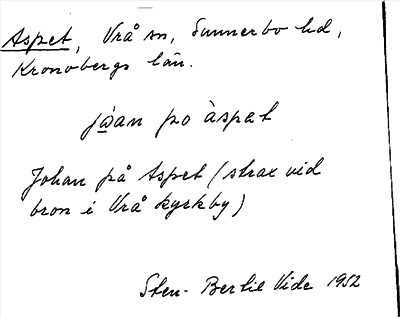 Aspet, Vrå sn, Sunnerbo hd,
Kronobergs län.
jòan po àspat
Johan på Aspet (strax vid
bron i Vrå kyrkby)
Sten-Bertil Vide 1952